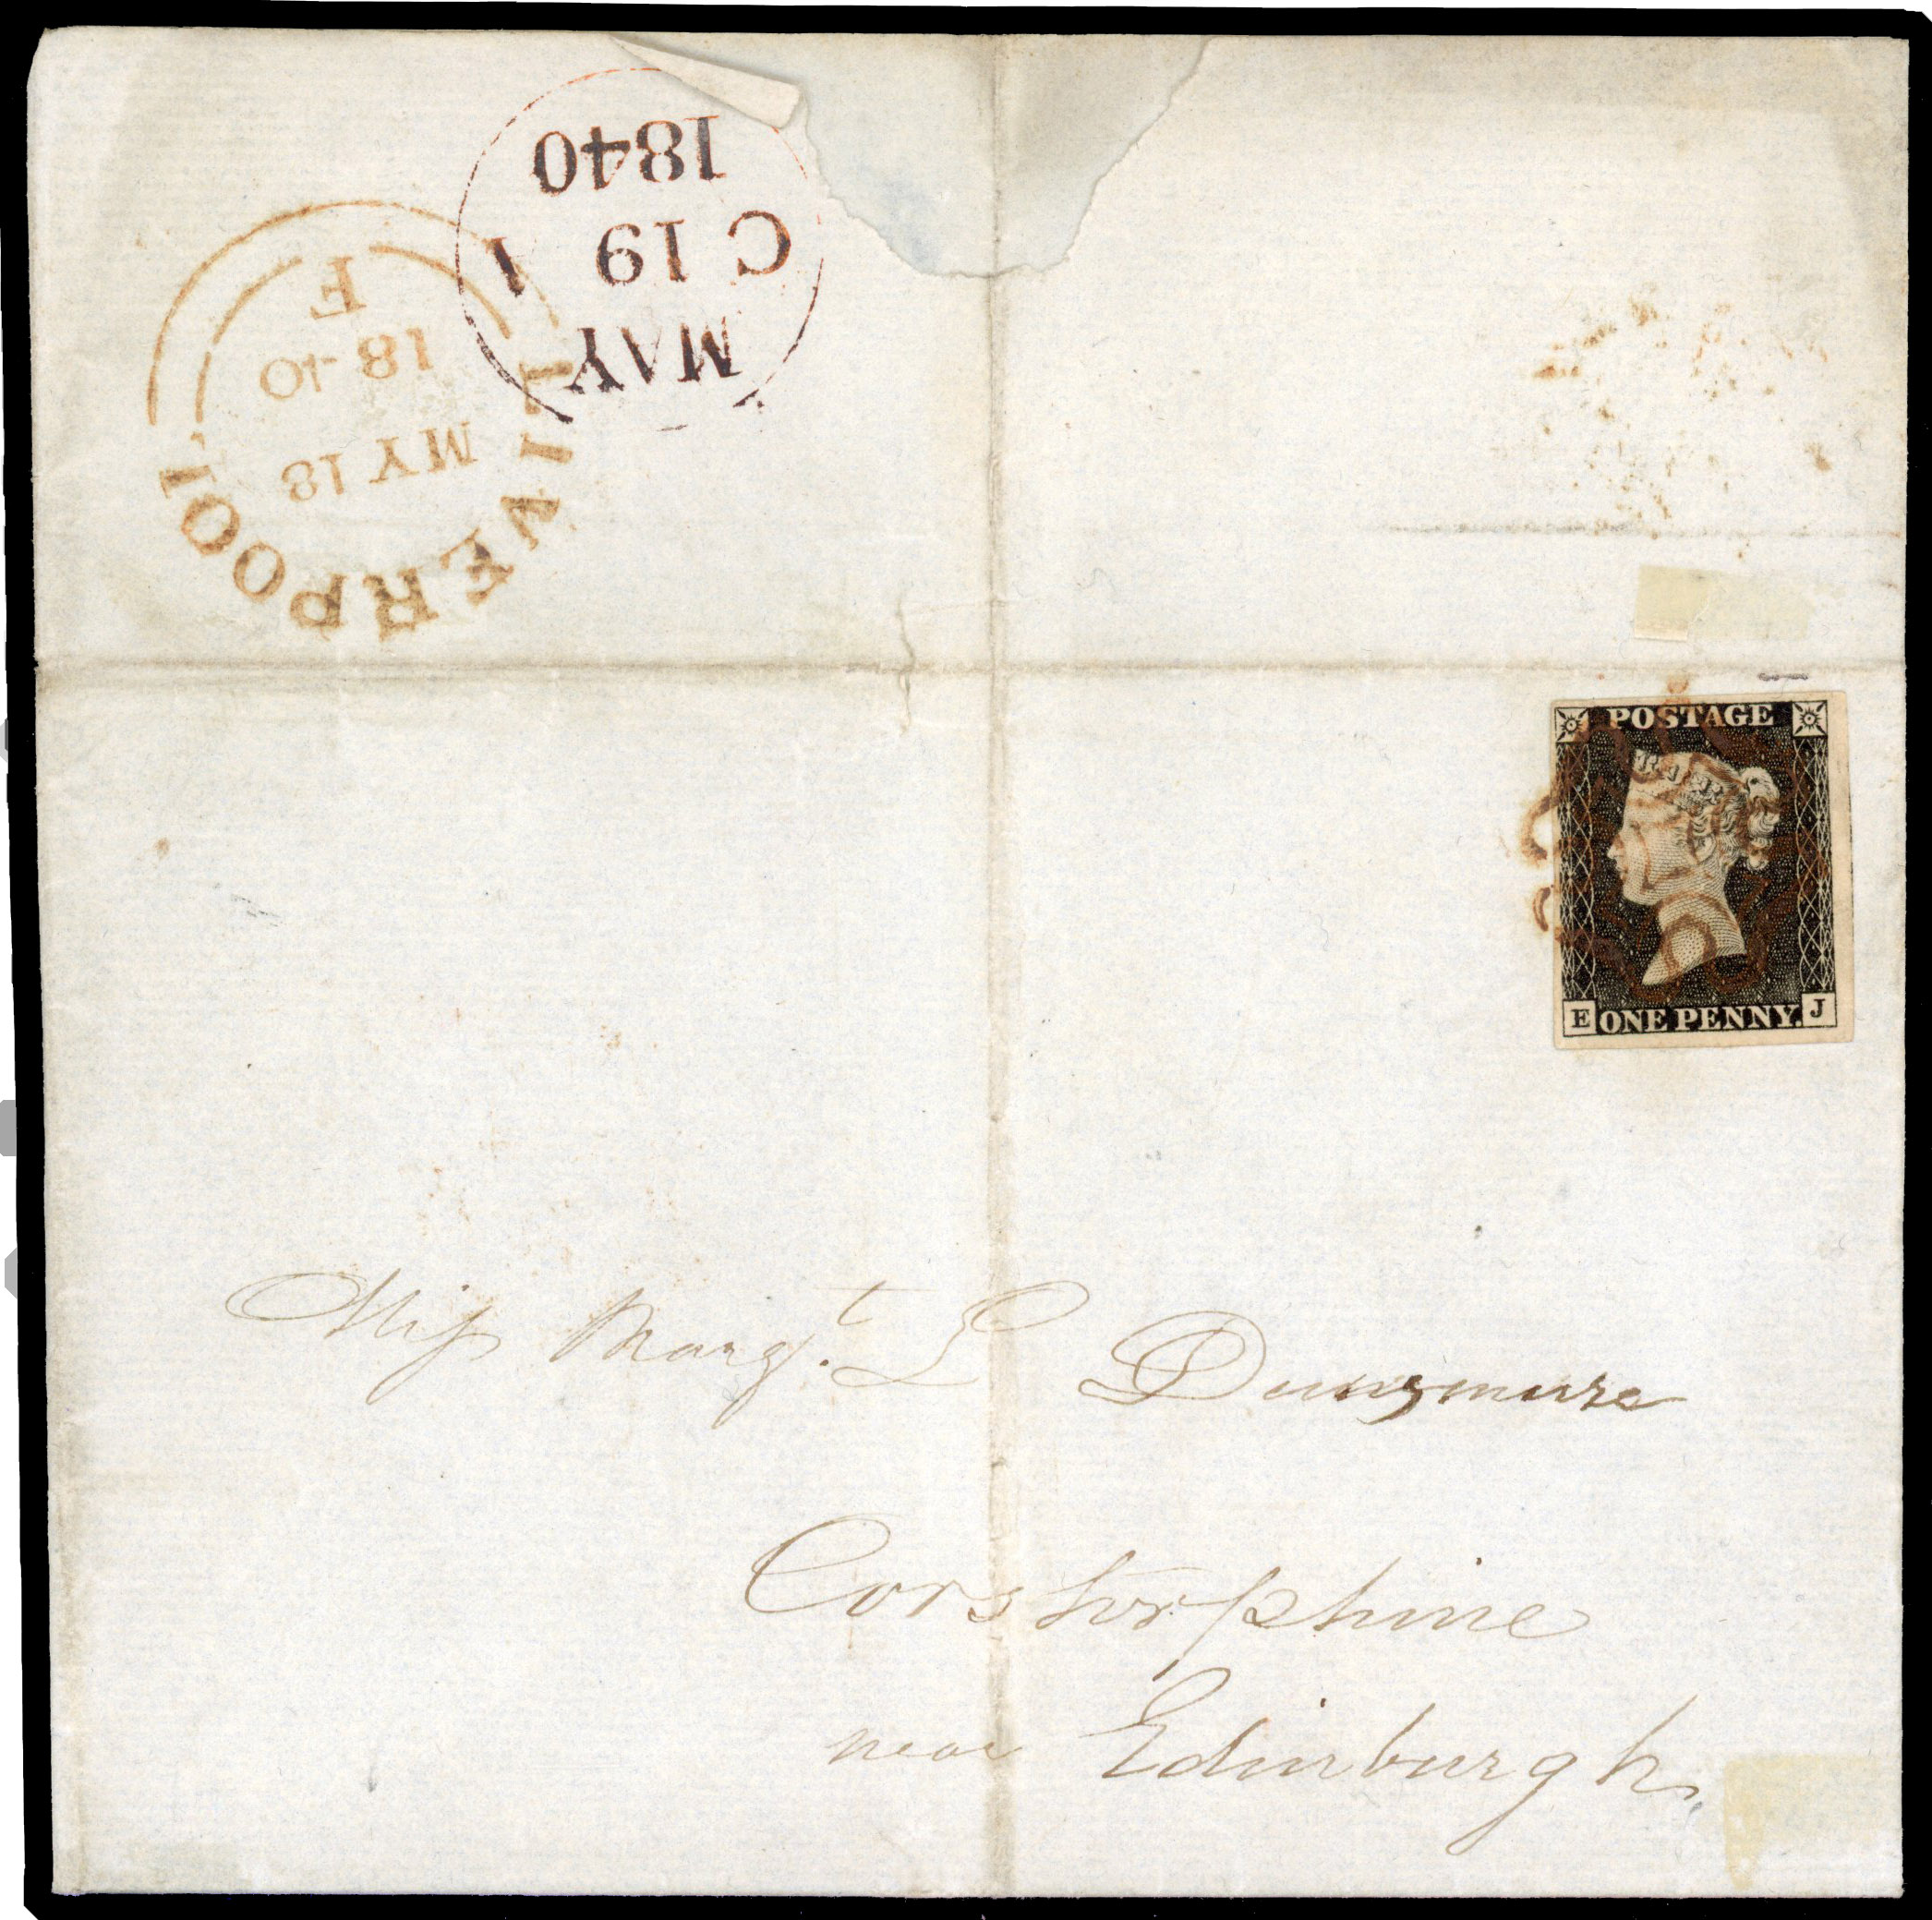 MAY
C 19
1840
LIVERPOOL
MY 18
1840
F
POSTAGE
E ONE PENNY. J
Miss Margt. L Dunsmure
Corstorphine
near Edinburgh.